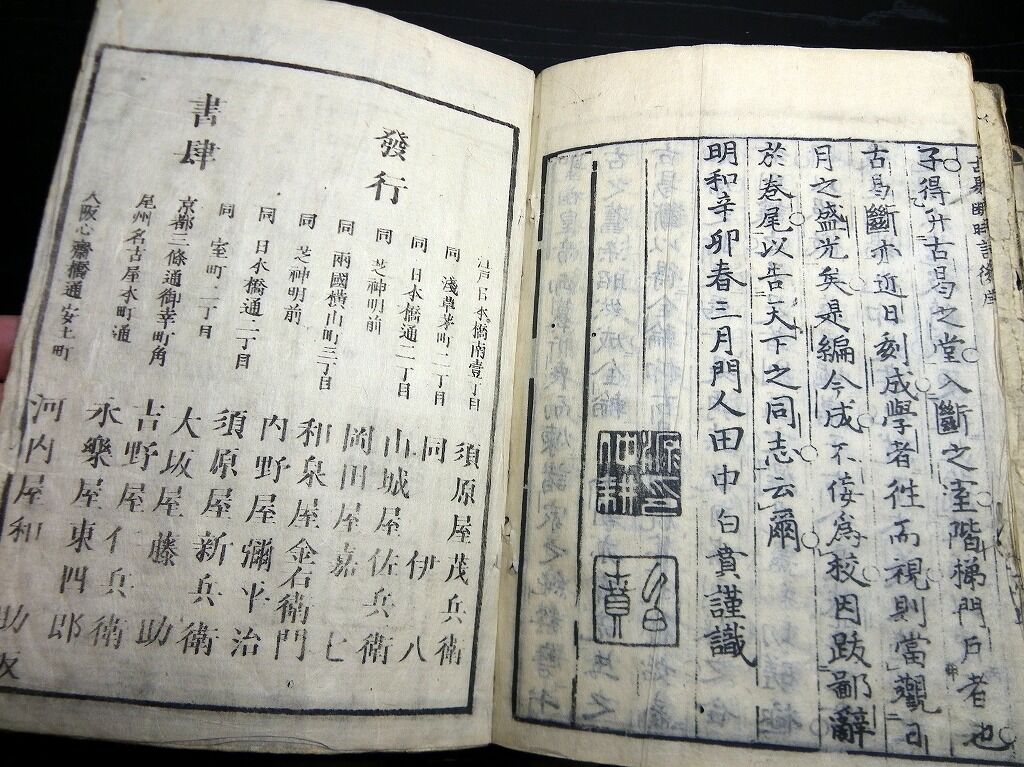 古易斷時言後序
子得升古易之堂入斷之室階梯門戶者也
古易斷亦近日刻成學者徃而視則當觀日
月之盛光矣是編今成不佞為校因跋鄙辭
於卷尾以告天下之同志云爾
明和辛卯春三月門人田中白賁謹識
發行
書肆
江戶日本橋南壹丁目 須原屋茂兵衛
同 淺草茅町二丁目 同 伊八
同 日本橋通二丁目 山城屋佐兵衛
同 芝神明前 岡田屋嘉七
同 兩國橫山町三丁目 和泉屋金右衛門
同 芝神明前 內野屋彌平治
同 日本橋通二丁目 須原屋新兵衛
同 室町二丁目 大坂屋藤助
京都三條通御幸町角 吉野屋仁兵衛
尾州名古屋本町通 永樂屋東四郎
大阪心齋橋通安土町 河內屋和助